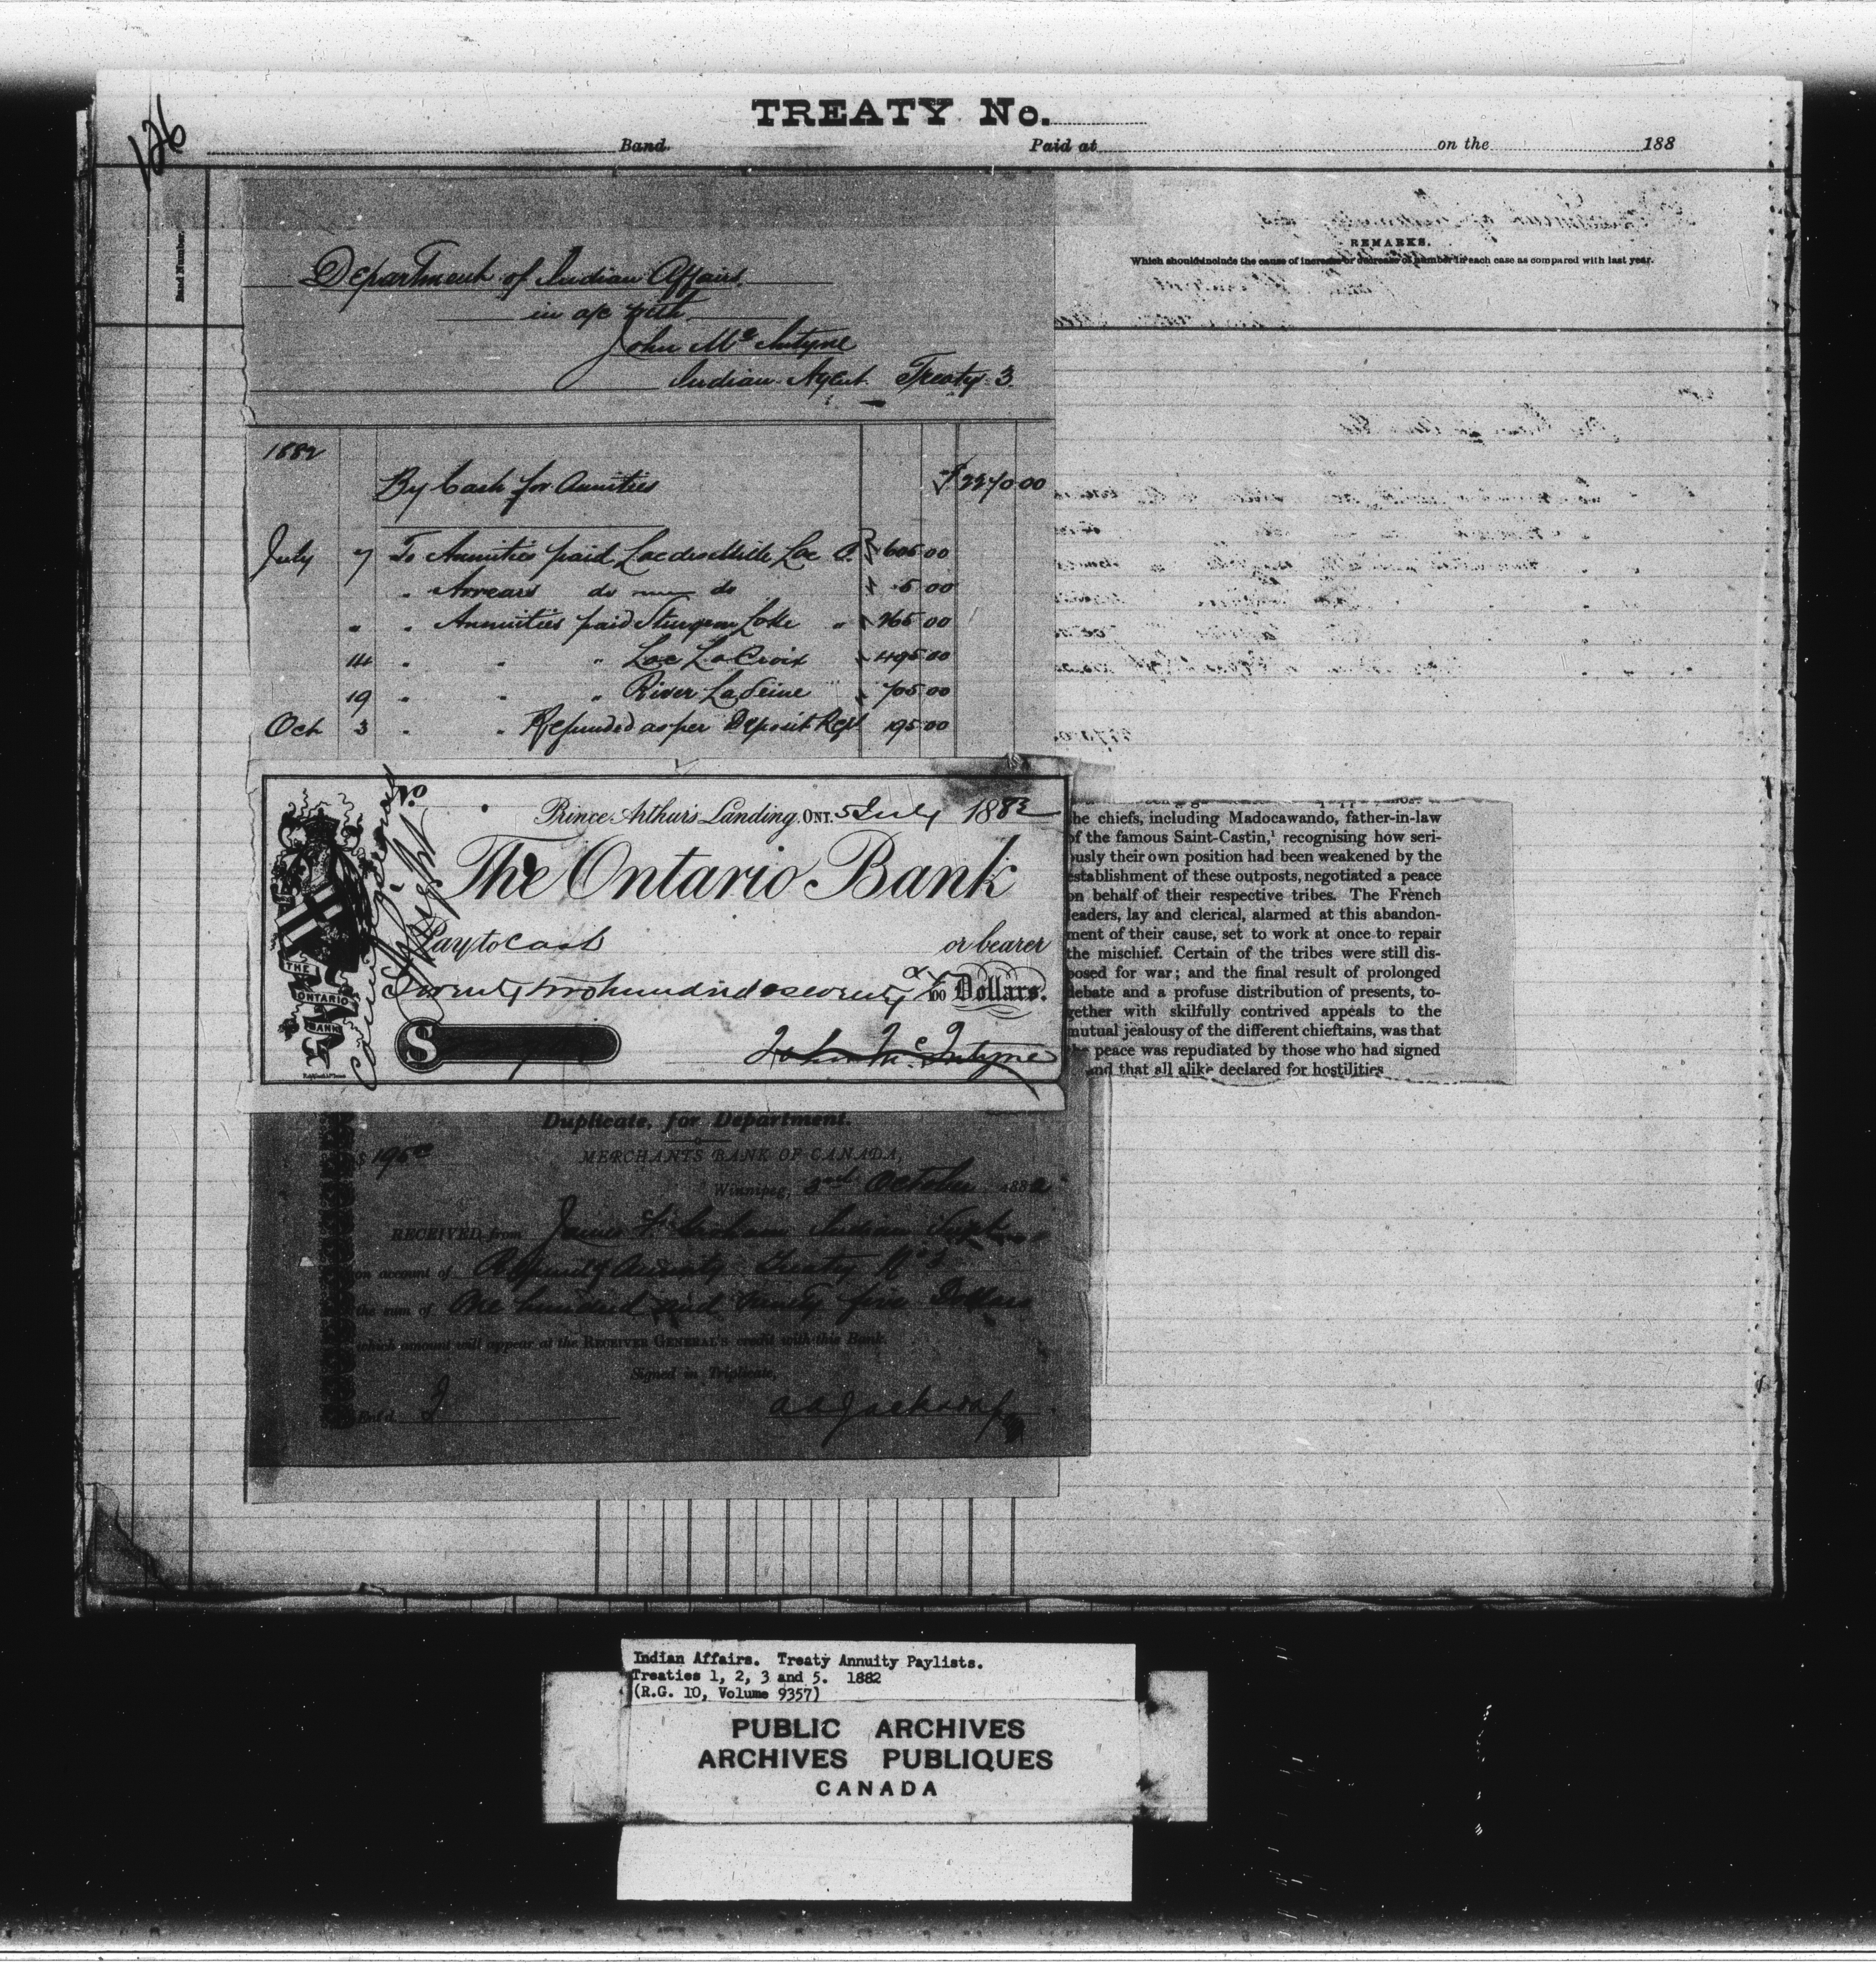 126
TREATY No.
Band. Paid at on the 188
Band Number.
REMARKS.
Which should include the cause of increase or decrease of number in each case as compared with last year.
Department of Indian Affairs.
in a/c with
John Mc Intyre
Indian Agent Treaty 3.
1882
By Cash for Annuities $2270.00
July 7 To Annuities paid Lac des Mille Lac 605.00
" Arrears do do 5.00
" " Annuities paid Sturgeon Lake " 265.00
14 " " " Lac La Croix 495.00
19 " " " River La Seine 705.00
Oct 3 " " Refunded as per Deposit Rect 195.00
No.
Prince Arthur's Landing, ONT. 5 July 1882
The Ontario Bank
Pay to Cash or bearer
Twenty two hundred & seventy 100 Dollars.
$
John Mc Intyre
THE
ONTARIO
BANK
he chiefs, including Madocawando, father-in-law
of the famous Saint-Castin,¹ recognising how seri-
ously their own position had been weakened by the
establishment of these outposts, negotiated a peace
on behalf of their respective tribes. The French
leaders, lay and clerical, alarmed at this abandon-
ment of their cause, set to work at once to repair
the mischief. Certain of the tribes were still dis-
posed for war; and the final result of prolonged
debate and a profuse distribution of presents, to-
gether with skilfully contrived appeals to the
mutual jealousy of the different chieftains, was that
the peace was repudiated by those who had signed
and that all alike declared for hostilities
Duplicate, for Department.
$ 195.00
MERCHANTS BANK OF CANADA,
Winnipeg, 3rd October 1882
RECEIVED from James F. Graham Indian Supt
on account of Refund of Annuity Treaty No 3
the sum of One hundred and ninety five Dollars
which amount will appear at the RECEIVER GENERAL'S credit with this Bank.
Signed in Triplicate,
Ent'd
Indian Affairs. Treaty Annuity Paylists.
Treaties 1, 2, 3 and 5. 1882
(R.G. 10, Volume 9357)
PUBLIC ARCHIVES
ARCHIVES PUBLIQUES
CANADA